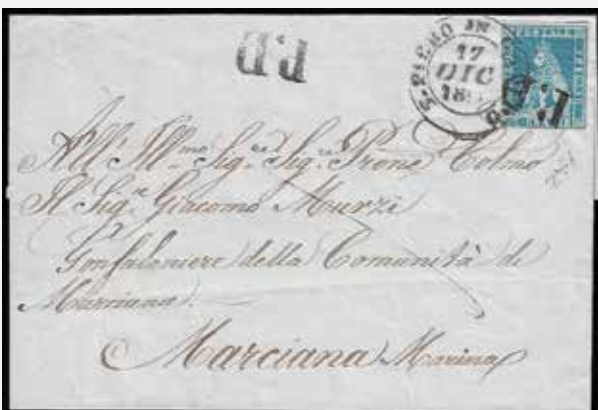 P.D
S. PIERO IN
17
DIC
P.D
All'Ill.mo Sig.re Sig.re Prone Colmo
Il Sig.re Giacomo Murzi
Gonfaloniere della Comunità di
Marciana
Marciana Marina